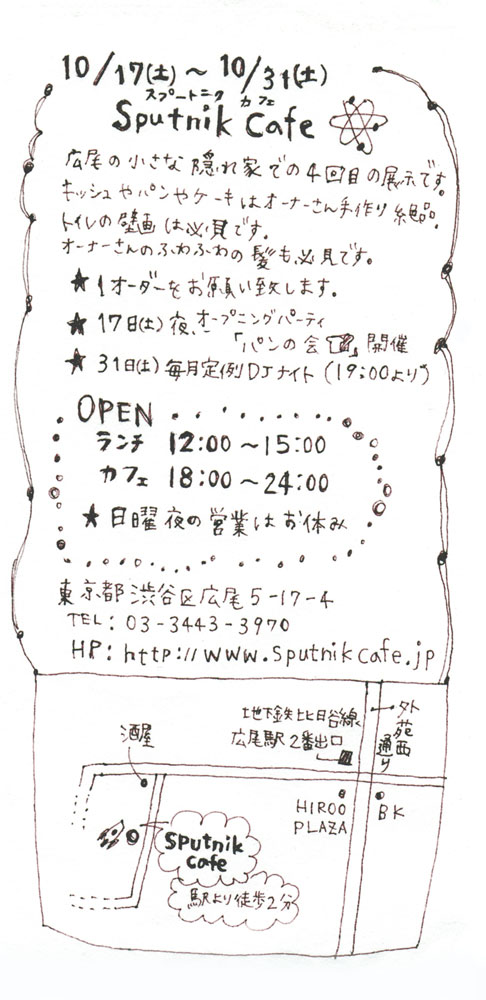 10/17(土)～10/31(土)
スプートニク カフェ
Sputnik Cafe
広尾の小さな隠れ家での4回目の展示です。
キッシュやパンやケーキはオーナーさん手作り絶品。
トイレの壁画は必見です。
オーナーさんのふわふわの髪も必見です。
★1オーダーをお願い致します。
★17日(土)夜、オープニングパーティ
「パンの会」開催
★31日(土)毎月定例DJナイト(19:00より)
OPEN
ランチ 12:00～15:00
カフェ 18:00～24:00
★日曜夜の営業はお休み
東京都渋谷区広尾5-17-4
TEL:03-3443-3970
HP:http://www.sputnikcafe.jp
地下鉄日比谷線
広尾駅2番出口
外苑西通り
酒屋
HIROO PLAZA
BK
Sputnik
cafe
駅より徒歩2分